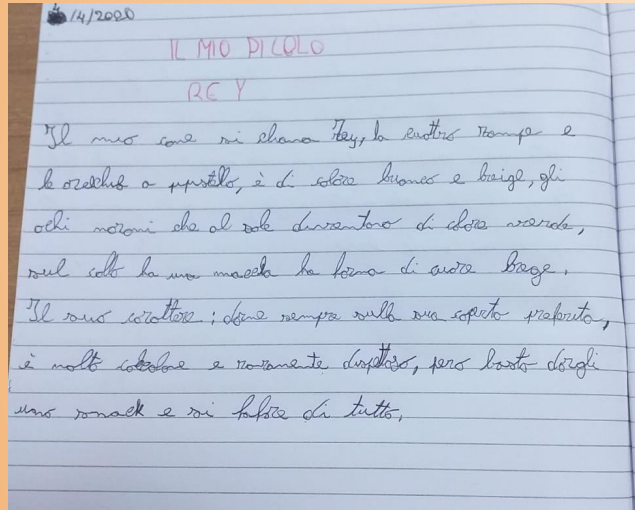 /4/2020
IL MIO PICOLO
REY
Il mio cane si chama Rey, ha quattro zampe e
le orecchie a pipistrello, è di colore bianco e beige, gli
ochi maroni che al sole diventano di colore verde,
sul collo ha una macchia ha forma di cuore beige.
Il suo carattere: dorme sempre sulla sua coperta preferita,
è molto e raramente dispettoso, pero basta dargli
uno snack e si fa fare di tutto.